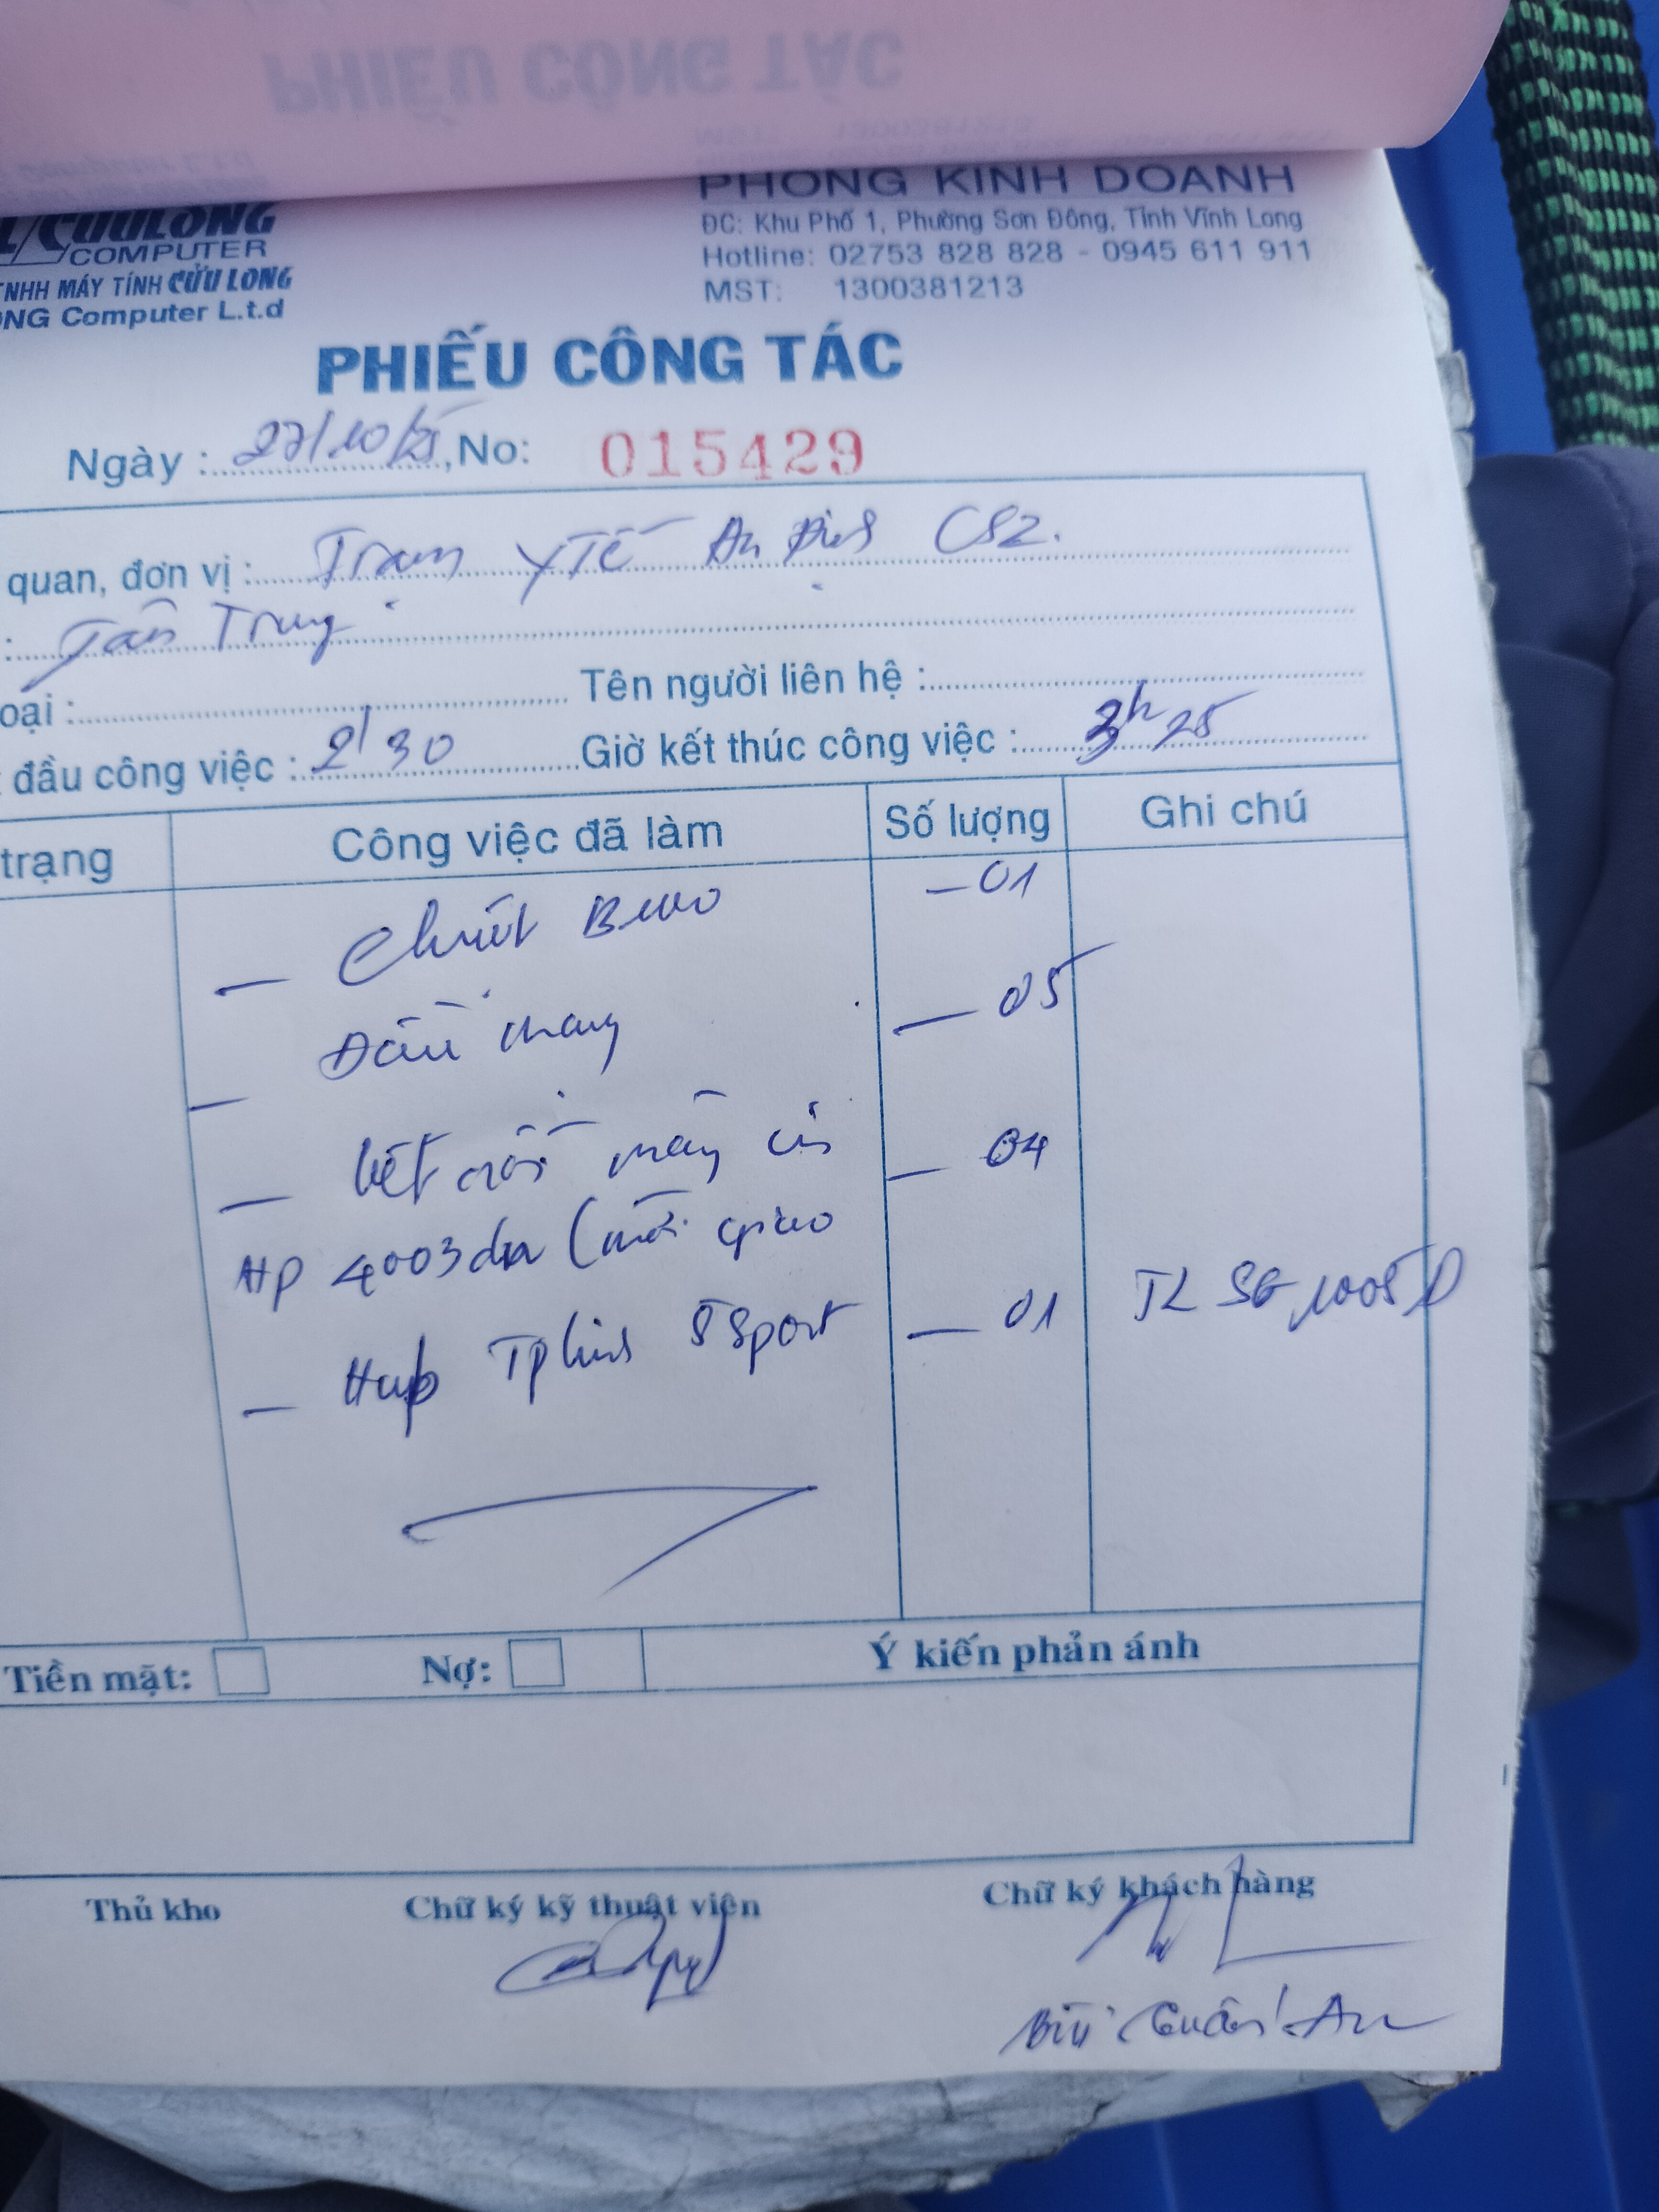 PHIẾU CÔNG TÁC
CỬU LONG
COMPUTER
TNHH MÁY TÍNH CỬU LONG
ONG Computer L.t.d
PHÒNG KINH DOANH
ĐC: Khu Phố 1, Phường Sơn Đông, Tỉnh Vĩnh Long
Hotline: 02753 828 828 - 0945 611 911
MST: 1300381213
PHIẾU CÔNG TÁC
Ngày : 27/10/25, No: 015429
quan, đơn vị : Trạm Y Tế An Định CS2.
: Tân Trung
oại : Tên người liên hệ :
đầu công việc : 2h30 Giờ kết thúc công việc : 3h25
trạng Công việc đã làm Số lượng Ghi chú
— Chuột — 01
— Đầu mạng — 05
— kết nối máy in — 04
HP 4003dn (mới giao
— Hub Tplink 5port — 01 TL SG 1005D
Tiền mặt: Nợ: Ý kiến phản ánh
Thủ kho Chữ ký kỹ thuật viên Chữ ký khách hàng
Bùi An